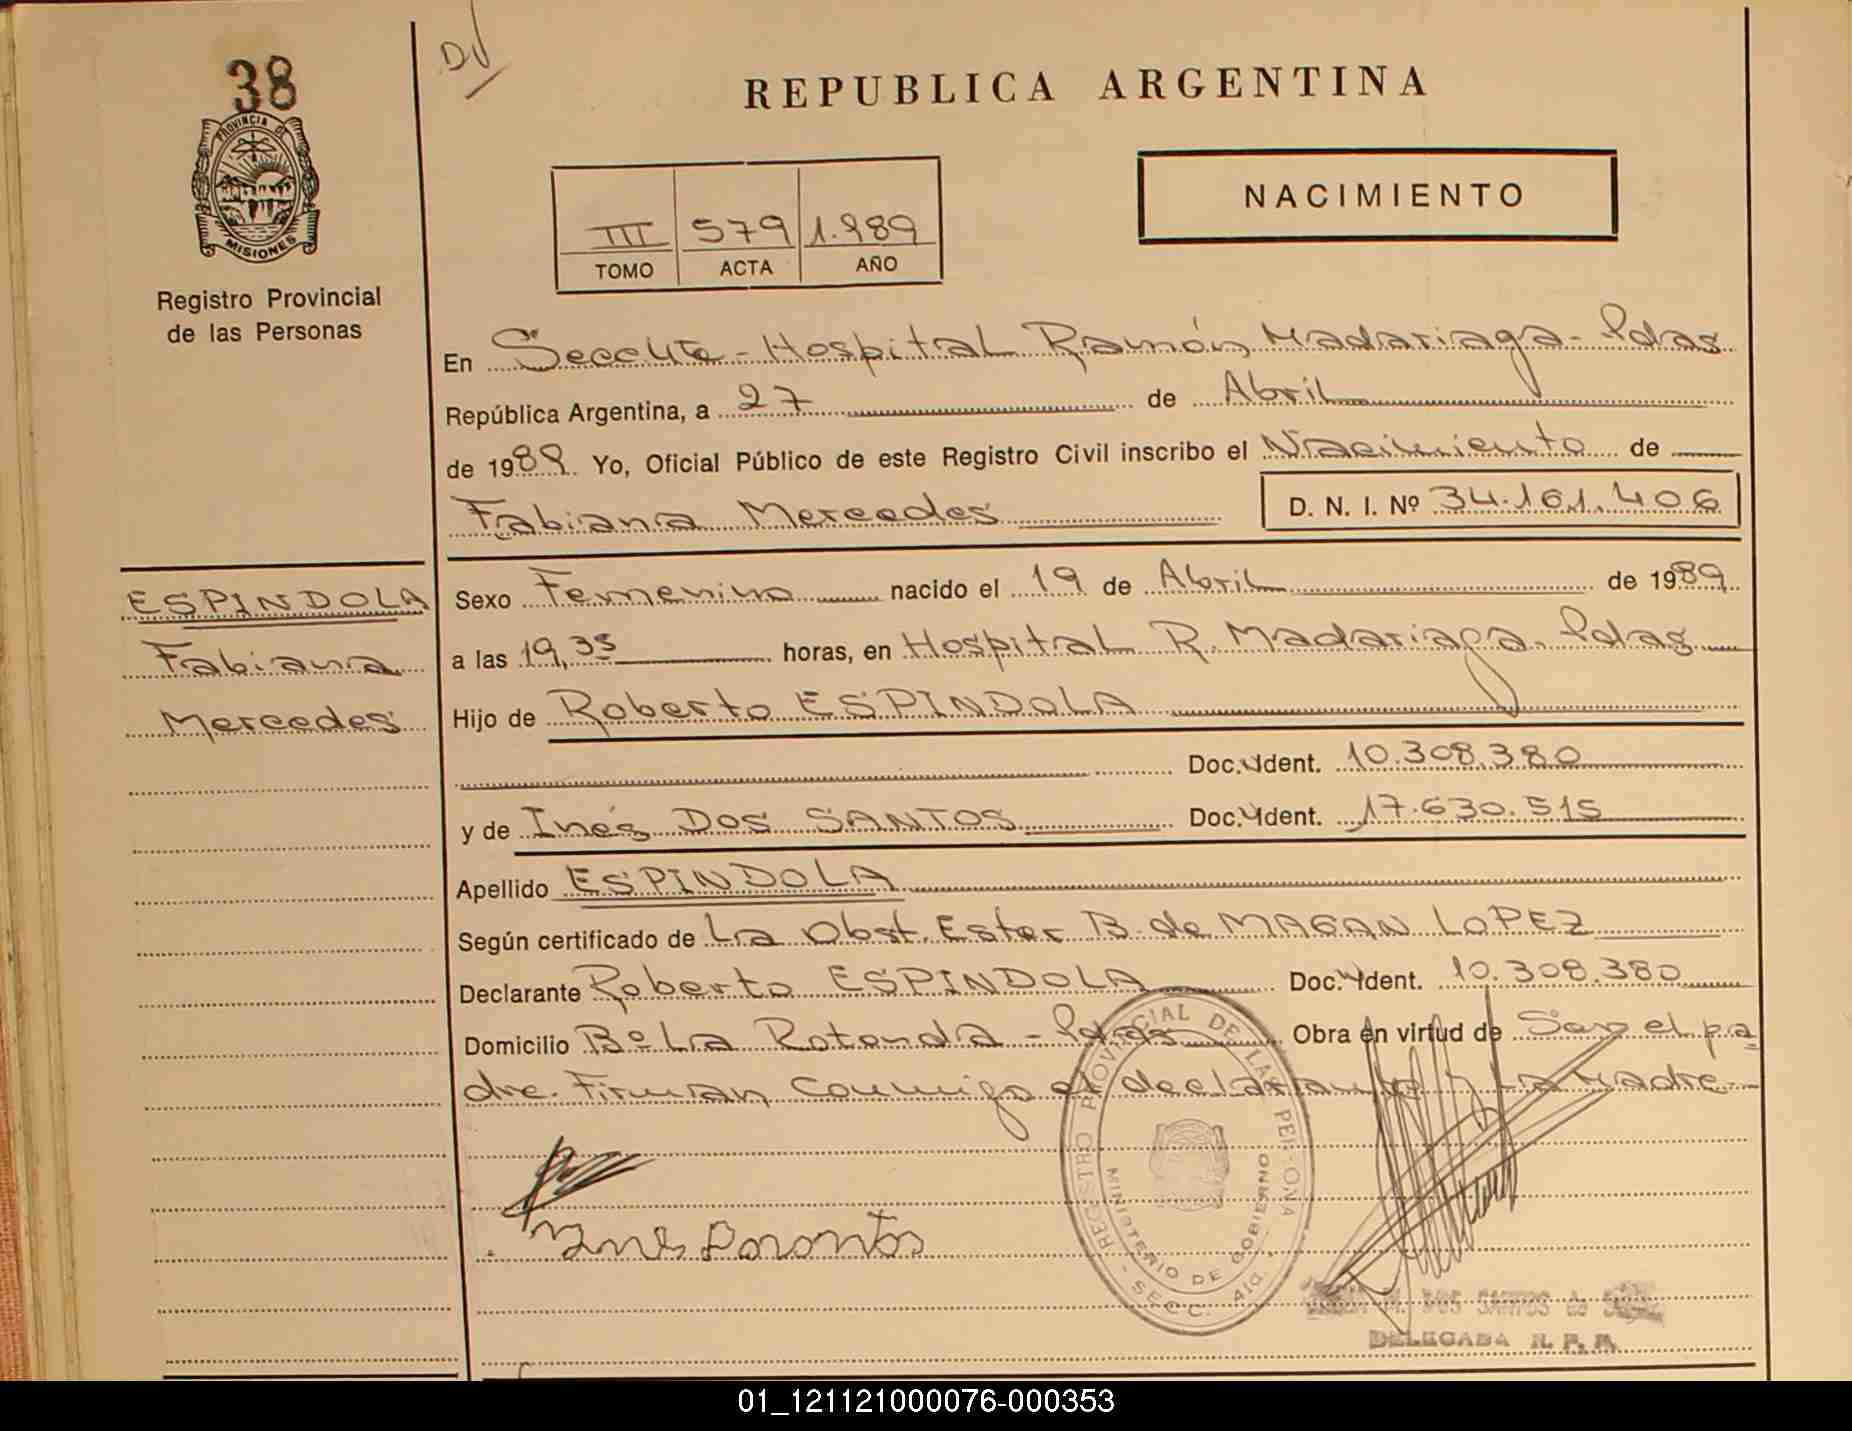 38
DV
PROVINCIA DE
MISIONES
Registro Provincial
de las Personas
REPUBLICA ARGENTINA
NACIMIENTO
III 579 1.989
TOMO ACTA AÑO
En Secc 4ta - Hospital Ramón Madariaga - Pdas
República Argentina, a 27 de Abril
de 1989. Yo, Oficial Público de este Registro Civil inscribo el Nacimiento de
Fabiana Mercedes D. N. I. Nº 34.161.406
ESPINDOLA
Fabiana
Mercedes
Sexo Femenino nacido el 19 de Abril de 1989
a las 19,35 horas, en Hospital R. Madariaga. Pdas
Hijo de Roberto ESPINDOLA
Doc. Ident. 10.308.380
y de Inés DOS SANTOS Doc. Ident. 17.630.515
Apellido ESPINDOLA
Según certificado de La Obst. Ester B. de MAGAN LOPEZ
Declarante Roberto ESPINDOLA Doc. Ident. 10.308.380
Domicilio Bº La Rotonda - Pdas Obra en virtud de Ser el pa
dre. Firman conmigo el declarante y La Madre -
REGISTRO PROVINCIAL DE LAS PERSONA
MINISTERIO DE GOBIERNO
- SECC. 4ta. -
DOS SANTOS de
DELEGADA R. P. P.
01_121121000076-000353